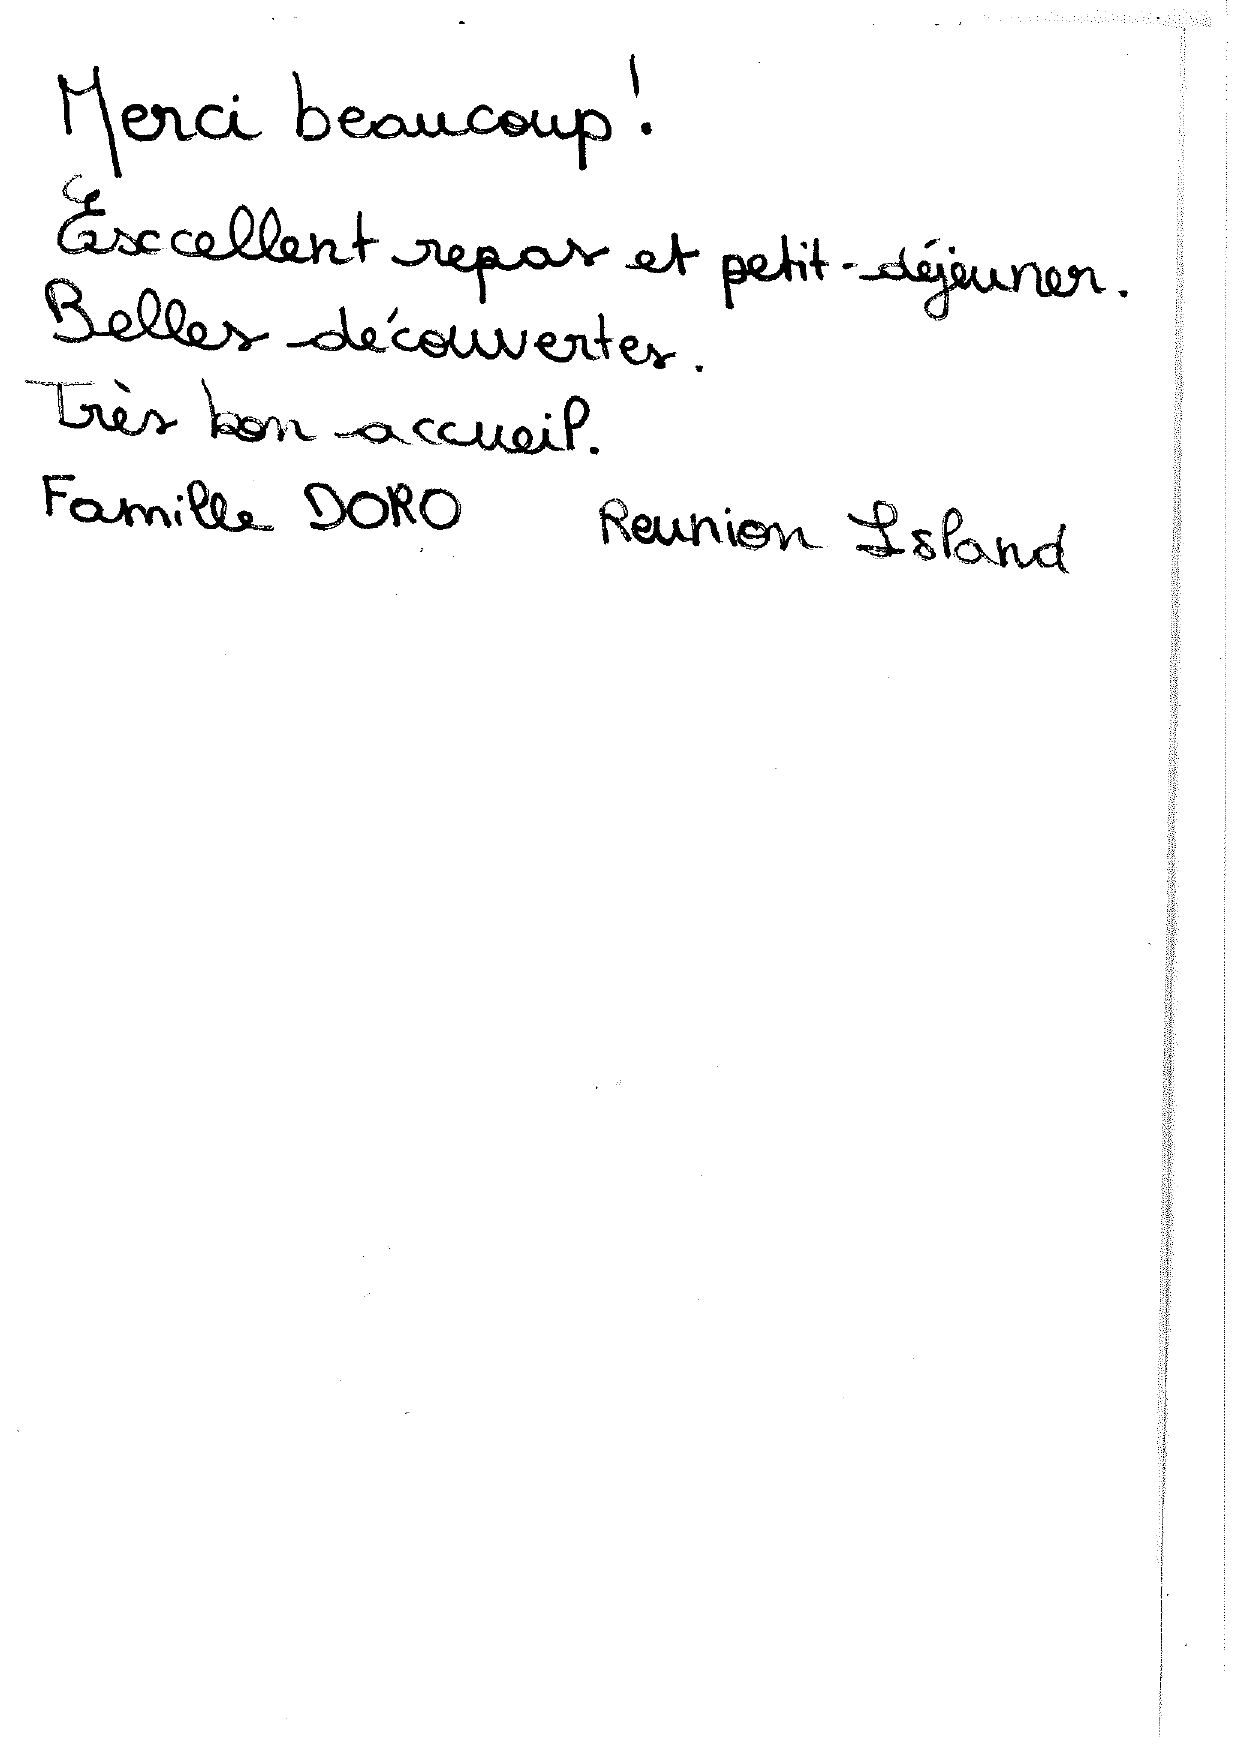 Merci beaucoup!
Excellent repas et petit-déjeuner.
Belles découvertes.
Très bon accueil.
Famille DORO Reunion Island